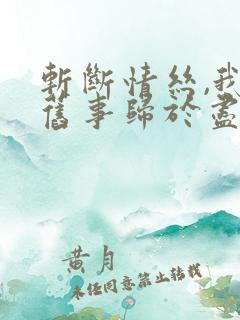 斬斷情絲,我
舊事歸於盡
黄月
未經同意禁止轉載